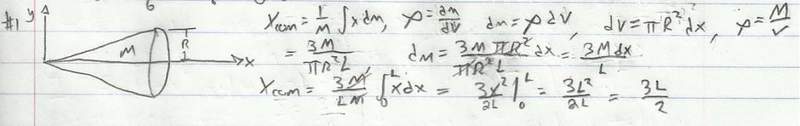 6
#1 y M R x X_com = 1/M ∫ x dm, ρ = dm/dV dm = ρ dV, dV = πR² dx, ρ = M/V
= 3M/πR²L, dm = 3M πR²/πR²L dx = 3M dx/L
X_com = 3M/LM ∫₀ᴸ x dx = 3x²/2L |₀ᴸ = 3L²/2L = 3L/2